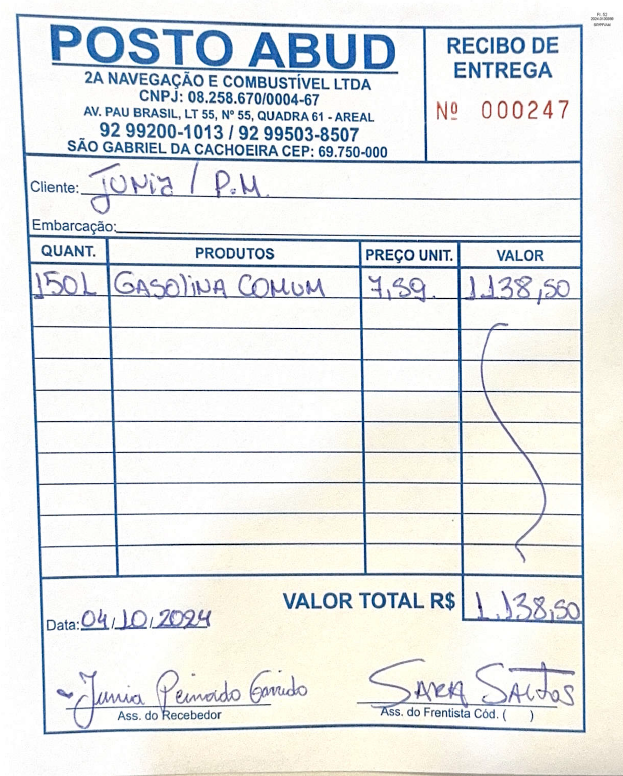 POSTO ABUD
2A NAVEGAÇÃO E COMBUSTÍVEL LTDA
CNPJ: 08.258.670/0004-67
AV. PAU BRASIL, LT 55, Nº 55, QUADRA 61 - AREAL
92 99200-1013 / 92 99503-8507
SÃO GABRIEL DA CACHOEIRA CEP: 69.750-000
RECIBO DE
ENTREGA
Nº 000247
Cliente: Junia / P.M.
Embarcação:
QUANT. PRODUTOS PREÇO UNIT. VALOR
150L GASOLINA COMUM 7,59 1.138,50
VALOR TOTAL R$ 1.138,50
Data: 04/10/2024
Junia Garrido
Ass. do Recebedor
SARA SANTOS
Ass. do Frentista Cód. ( )